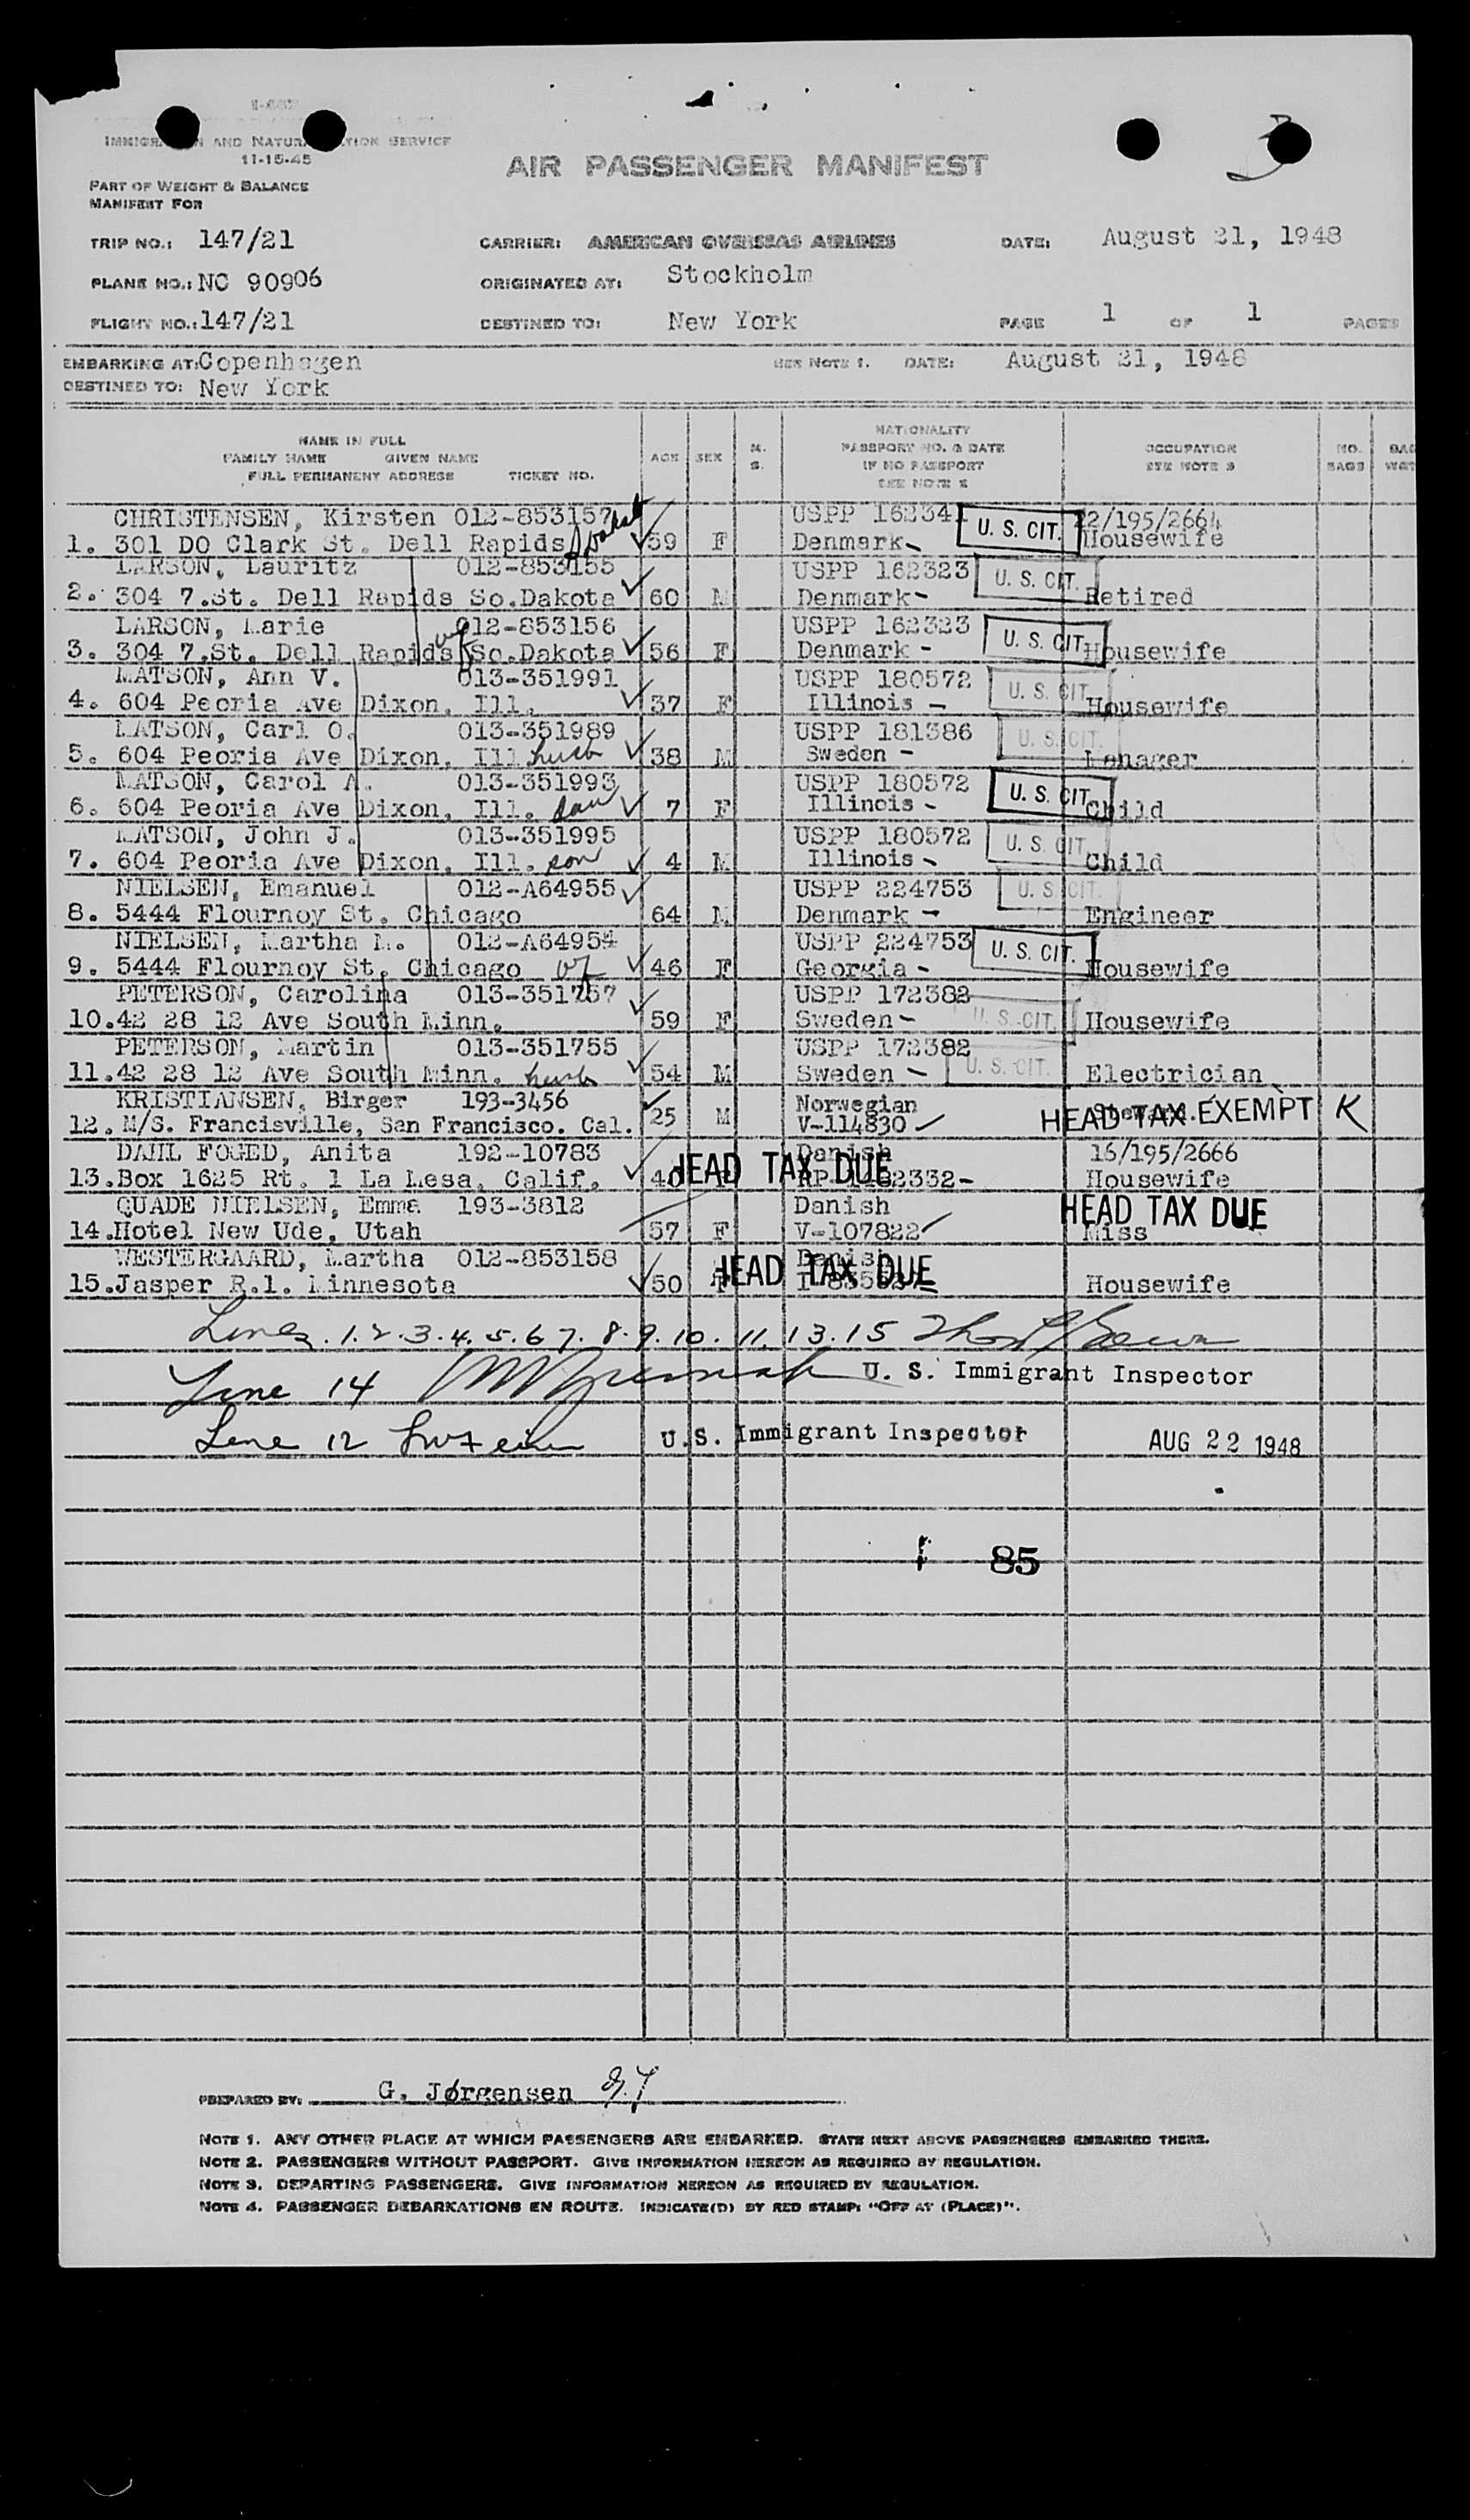 IMMIGRATION AND NATURALIZATION SERVICE
11-15-45
AIR PASSENGER MANIFEST
PART OF WEIGHT & BALANCE
MANIFEST FOR
TRIP NO.: 147/21 CARRIER: AMERICAN OVERSEAS AIRLINES DATE: August 21, 1948
PLANE NO.: NC 90906 ORIGINATED AT: Stockholm
FLIGHT NO.: 147/21 DESTINED TO: New York PAGE 1 OF 1 PAGES
EMBARKING AT: Copenhagen SEE NOTE 1. DATE: August 21, 1948
DESTINED TO: New York
NAME IN FULL
FAMILY NAME GIVEN NAME
FULL PERMANENT ADDRESS TICKET NO.
AGE SEX M. S.
NATIONALITY
PASSPORT NO. & DATE
IF NO PASSPORT
SEE NOTE 2
OCCUPATION
SEE NOTE 3
NO. BAGS
BAG WGT
CHRISTENSEN, Kirsten 012-853157 USPP 162341 U. S. CIT. 22/195/2664
1. 301 DO Clark St. Dell Rapids S Dakota 59 F Denmark- Housewife
LARSON, Lauritz 012-853155 USPP 162323 U. S. CIT.
2. 304 7.St. Dell Rapids So.Dakota 60 M Denmark- Retired
LARSON, Marie 012-853156 USPP 162323 U. S. CIT.
3. 304 7.St. Dell Rapids wf So.Dakota 56 F Denmark - Housewife
MATSON, Ann V. 013-351991 USPP 180572 U. S. CIT.
4. 604 Peoria Ave Dixon, Ill. 37 F Illinois - Housewife
MATSON, Carl O. 013-351989 USPP 181386 U. S. CIT.
5. 604 Peoria Ave Dixon, Ill husb 38 M Sweden - Manager
MATSON, Carol A. 013-351993 USPP 180572 U. S. CIT.
6. 604 Peoria Ave Dixon, Ill. dau 7 F Illinois - Child
MATSON, John J. 013-351995 USPP 180572 U. S. CIT.
7. 604 Peoria Ave Dixon, Ill. son 4 M Illinois - Child
NIELSEN, Emanuel 012-A64955 USPP 224753 U. S. CIT.
8. 5444 Flournoy St. Chicago 64 M Denmark - Engineer
NIELSEN, Martha M. 012-A64954 USPP 224753 U. S. CIT.
9. 5444 Flournoy St. Chicago wf 46 F Georgia - Housewife
PETERSON, Carolina 013-351757 USPP 172382 U. S. CIT.
10. 42 28 12 Ave South Minn. 59 F Sweden - Housewife
PETERSON, Martin 013-351755 USPP 172382 U. S. CIT.
11. 42 28 12 Ave South Minn. husb 54 M Sweden - Electrician
KRISTIANSEN, Birger 193-3456 Norwegian HEAD TAX EXEMPT K
12. M/S. Francisville, San Francisco. Cal. 25 M V-114830
DAHL FOGED, Anita 192-10783 Danish 16/195/2666
13. Box 1625 Rt. 1 La Mesa, Calif. 40 HEAD TAX DUE Housewife
QUADE NIELSEN, Emma 193-3812 Danish HEAD TAX DUE
14. Hotel New Ude, Utah 57 F V-107822 Miss
WESTERGAARD, Martha 012-853158 Danish
15. Jasper R.1. Minnesota 50 F HEAD TAX DUE Housewife
Lines. 1. 2. 3. 4. 5. 6 7. 8. 9. 10. 11. 13. 15
Line 14 U. S. Immigrant Inspector
Line 12 U.S. Immigrant Inspector AUG 22 1948
85
PREPARED BY: G. Jørgensen
NOTE 1. ANY OTHER PLACE AT WHICH PASSENGERS ARE EMBARKED. STATE NEXT ABOVE PASSENGERS EMBARKED THERE.
NOTE 2. PASSENGERS WITHOUT PASSPORT. GIVE INFORMATION HEREON AS REQUIRED BY REGULATION.
NOTE 3. DEPARTING PASSENGERS. GIVE INFORMATION HEREON AS REQUIRED BY REGULATION.
NOTE 4. PASSENGER DEBARKATIONS EN ROUTE. INDICATE(D) BY RED STAMP: "OFF AT (PLACE)".